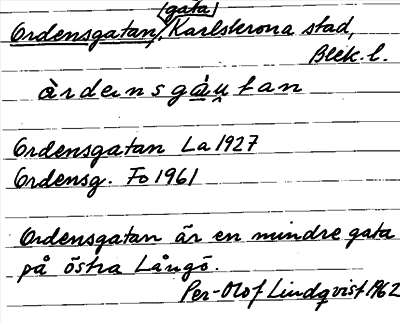 Ordensgatan, gata, Karlskrona stad,
Blek. l.
àrdensgáu̯tan
Ordensgatan La 1927
Ordensg. Fo 1961
Ordensgatan är en mindre gata
på östra Långö.
Per-Olof Lindqvist 1962